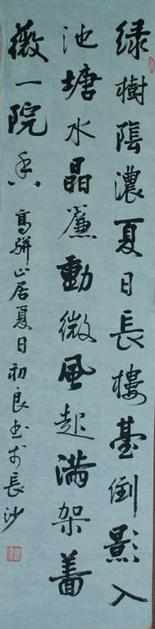 绿樹陰濃夏日長樓臺倒影入
池塘水晶簾動微風起满架薔
薇一院香 高駢山居夏日 初良书于長沙